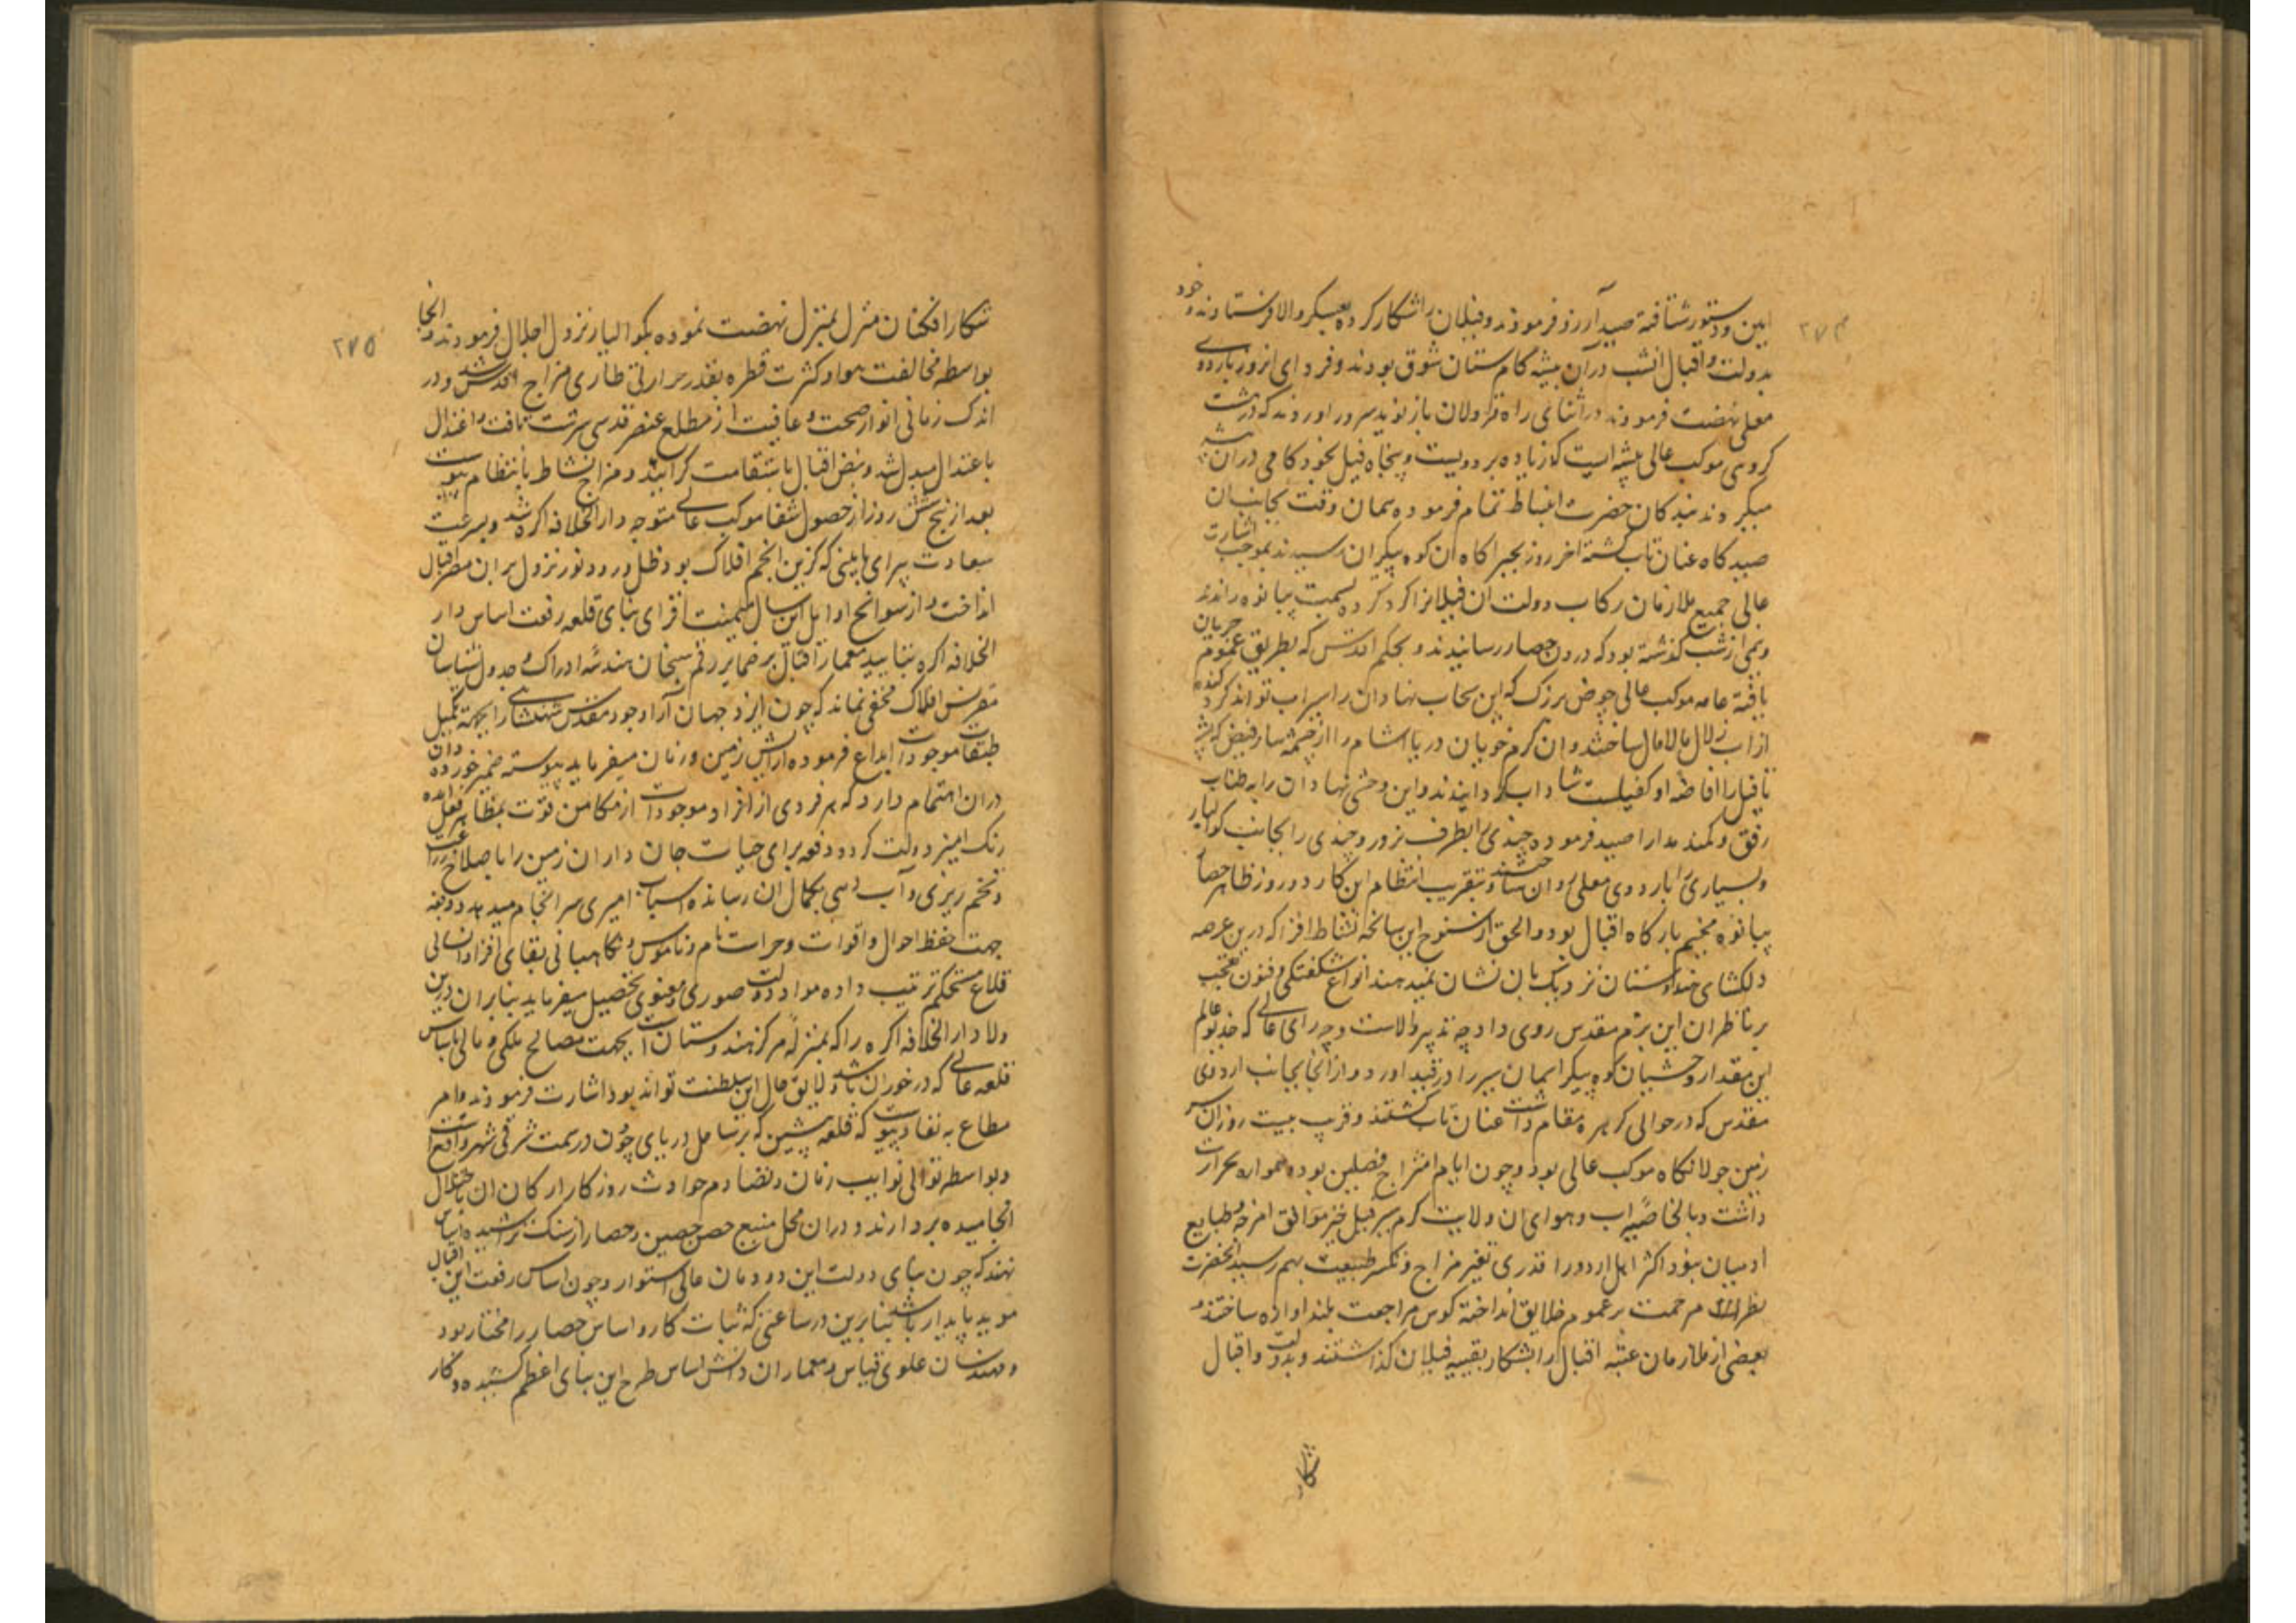 ۲۷۴
ایین و دستور شتافته صید آرزو فرمودند و فیلان را شکار کرده بعسکر والا فرستادند و خود
بدولت و اقبال انشب در آن بیشه کام ستان شوق بودند و فردای انروز باردوی
معلی نهضت فرمودند در اثنای راه قراولان باز نوید سرور اوردند که در هشت
کروهی موکب عالی بیشه ایست که زیاده بر دویست و پنجاه فیل بخود کامی در ان بیشه
میگردند بندکان حضرت انبساط تمام فرموده همان وقت بجانب ان
صیدکاه عنان تاب کشته اخر روز بچراکاه ان کوه پیکران رسیدند بموجب اشارت
عالی جمیع ملازمان رکاب دولت ان فیلانرا کرد کرده بسمت بیانوه راندند
و نیمی از شب کذشته بود که درون حصار رسانیدند و بحکم اقدس که بطریق عموم جریان
یافته عامه موکب عالی حوض بزرک که این سحاب نهادان را سیراب تواند کرد کنده
از اب زلال مالامال ساختند و ان کرم خویان دریا اشام را از چشمه سار فیض که پشه
تا فیل را افاضه او کفیلست شاداب کردانیدند و این وحشی نهادان را به طناب
رفق و کمند مدارا صید فرموده چندی را بطرف نرور و چندی را بجانب کوالیار
و بسیاری را باردوی معلی روان ساختند و بتقریب انتظام این کار دو روز ظاهر حصار
بیانوه مخیم بارکاه اقبال بود و الحق از سنوح این سانحه نشاط افزا که در ین عرصه
دلکشای هندوستان نزدیک بان نشان نمیدهند انواع شکفتکی و فنون تعجب
بر ناظران این بزم مقدس روی داد چه تدبیر والاست و چه رای عالی که خدیو عالم
این مقدار وحشیان کوه پیکر اسمان سیر را در قید اورد و از انجا بجانب اردوی
مقدس که در حوالی کرهره مقام داشت عنان تاب کشتند و قریب بیست روز ان سر
زمین جولانکاه موکب عالی بود و چون ایام امتزاج فصلین بود و هوا رو بحرارت
داشت و بالخاصیه اب و هوای ان ولایت کرم سیر فیل خیز موافق امزجه و طبایع
ادمیان نبود اکثر اهل اردو را قدری تغیر مزاج و تکسر طبیعت بهم رسید انحضرت
نظر مرحمت بر عموم خلایق انداخته کوس مراجعت بلند اوازه ساختند و
بعضی از ملازمان عتبه اقبال را بشکار بقیه فیلان کذاشتند و بدولت و اقبال
شکار
۲۷۵
شکار افکنان منزل بمنزل نهضت نموده بکوالیار نزول اجلال فرمودند و انجا
بواسطه مخالفت هوا و کثرت قطره بقدر حرارتی طاری مزاج اقدس شد و در
اندک زمانی انوار صحت و عافیت از مطلع عنصر قدسی سرشت تافت و اعتدال
باعتدال مبدل شد و نبض اقبال باستقامت کرایید و مزاج نشاط بانتظام پیوست
بعد از پنج شش روز از حصول شفا موکب عالی متوجه دارالخلافه اکره شد و بسرعت
سعادت پیرای که کزین انجم افلاک بود ظل ورود و نور نزول بر ان مصر اقبال
انداخت و از سوانح اوایل این سال میمنت افزای بنای قلعه رفعت اساس دار
الخلافه اکره بتایید معمار اقبال بر ضمایر رقم سنجان هندسه ادراک و جدول شناسان
مقرنس افلاک مخفی نماند که چون ایزد جهان آرا وجود مقدس شهنشاهی را بجهة تکمیل
طبقات موجودات ابداع فرموده ارایش زمین و زمان میفرماید پیوسته ضمیر خورده دان
دران اهتمام دارد که هر فردی از افراد موجودات از مکامن قوت بمظاهر فعل امده
رنک امیز دولت کردد دفعه برای حیات جان داران زمین را باصلاح زراعت
و تخم ریزی و آب دهی بکمال ان رسانده اسباب امیری سرانجام میدهد و دفعه
جهت حفظ احوال و اقوات و حراست نام و ناموس و نکاهبانی بقای افراد انسانی
قلاع مستحکم ترتیب داده مواد دولت صوری و معنوی تحصیل میفرماید بنابران درین
ولا دارالخلافه اکره را که بمنزلهٔ مرکز هندوستان است بجهت مصالح ملکی و مالی باساس
قلعه عالی که درخور ان باشد و لایق حال این سلطنت تواند بود اشارت فرمودند و امر
مطاع به نفاد پیوست که قلعه پیشین که بر ساحل دریای جون در سمت شرقی شهر واقع است
و بواسطه توالی نوایب زمان و تصادم حوادث روزکار ارکان ان باختلال
انجامیده بردارند و دران محل منیع حصن حصین و حصار از سنک تراشیده اساس
نهند که چون بنای دولت این دودمان عالی استوار و چون اساس رفعت این اقبال
موید پایدار باشد بنابرین در ساعتی که ثبات کار و اساس حصار را مختار بود
و مهندسان علوی قیاس و معماران دانش اساس طرح این بنای اعظم کشیده و کار